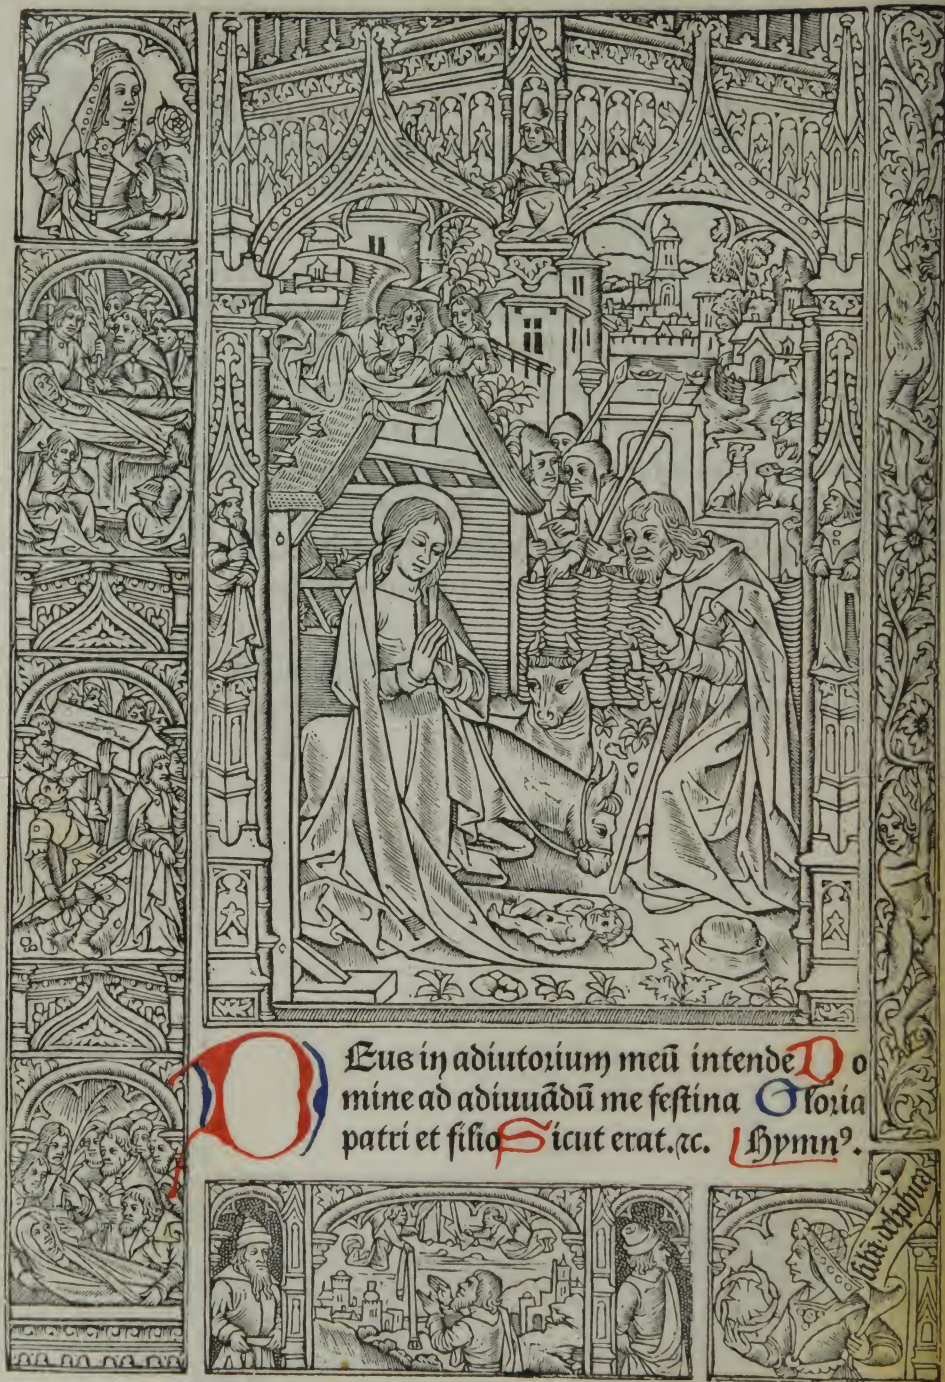 DEus in adiutorium meū intende Do
mine ad adiuuādū me festina Gloria
patri et filio Sicut erat.⁊c. Hymnꝰ.
delphica